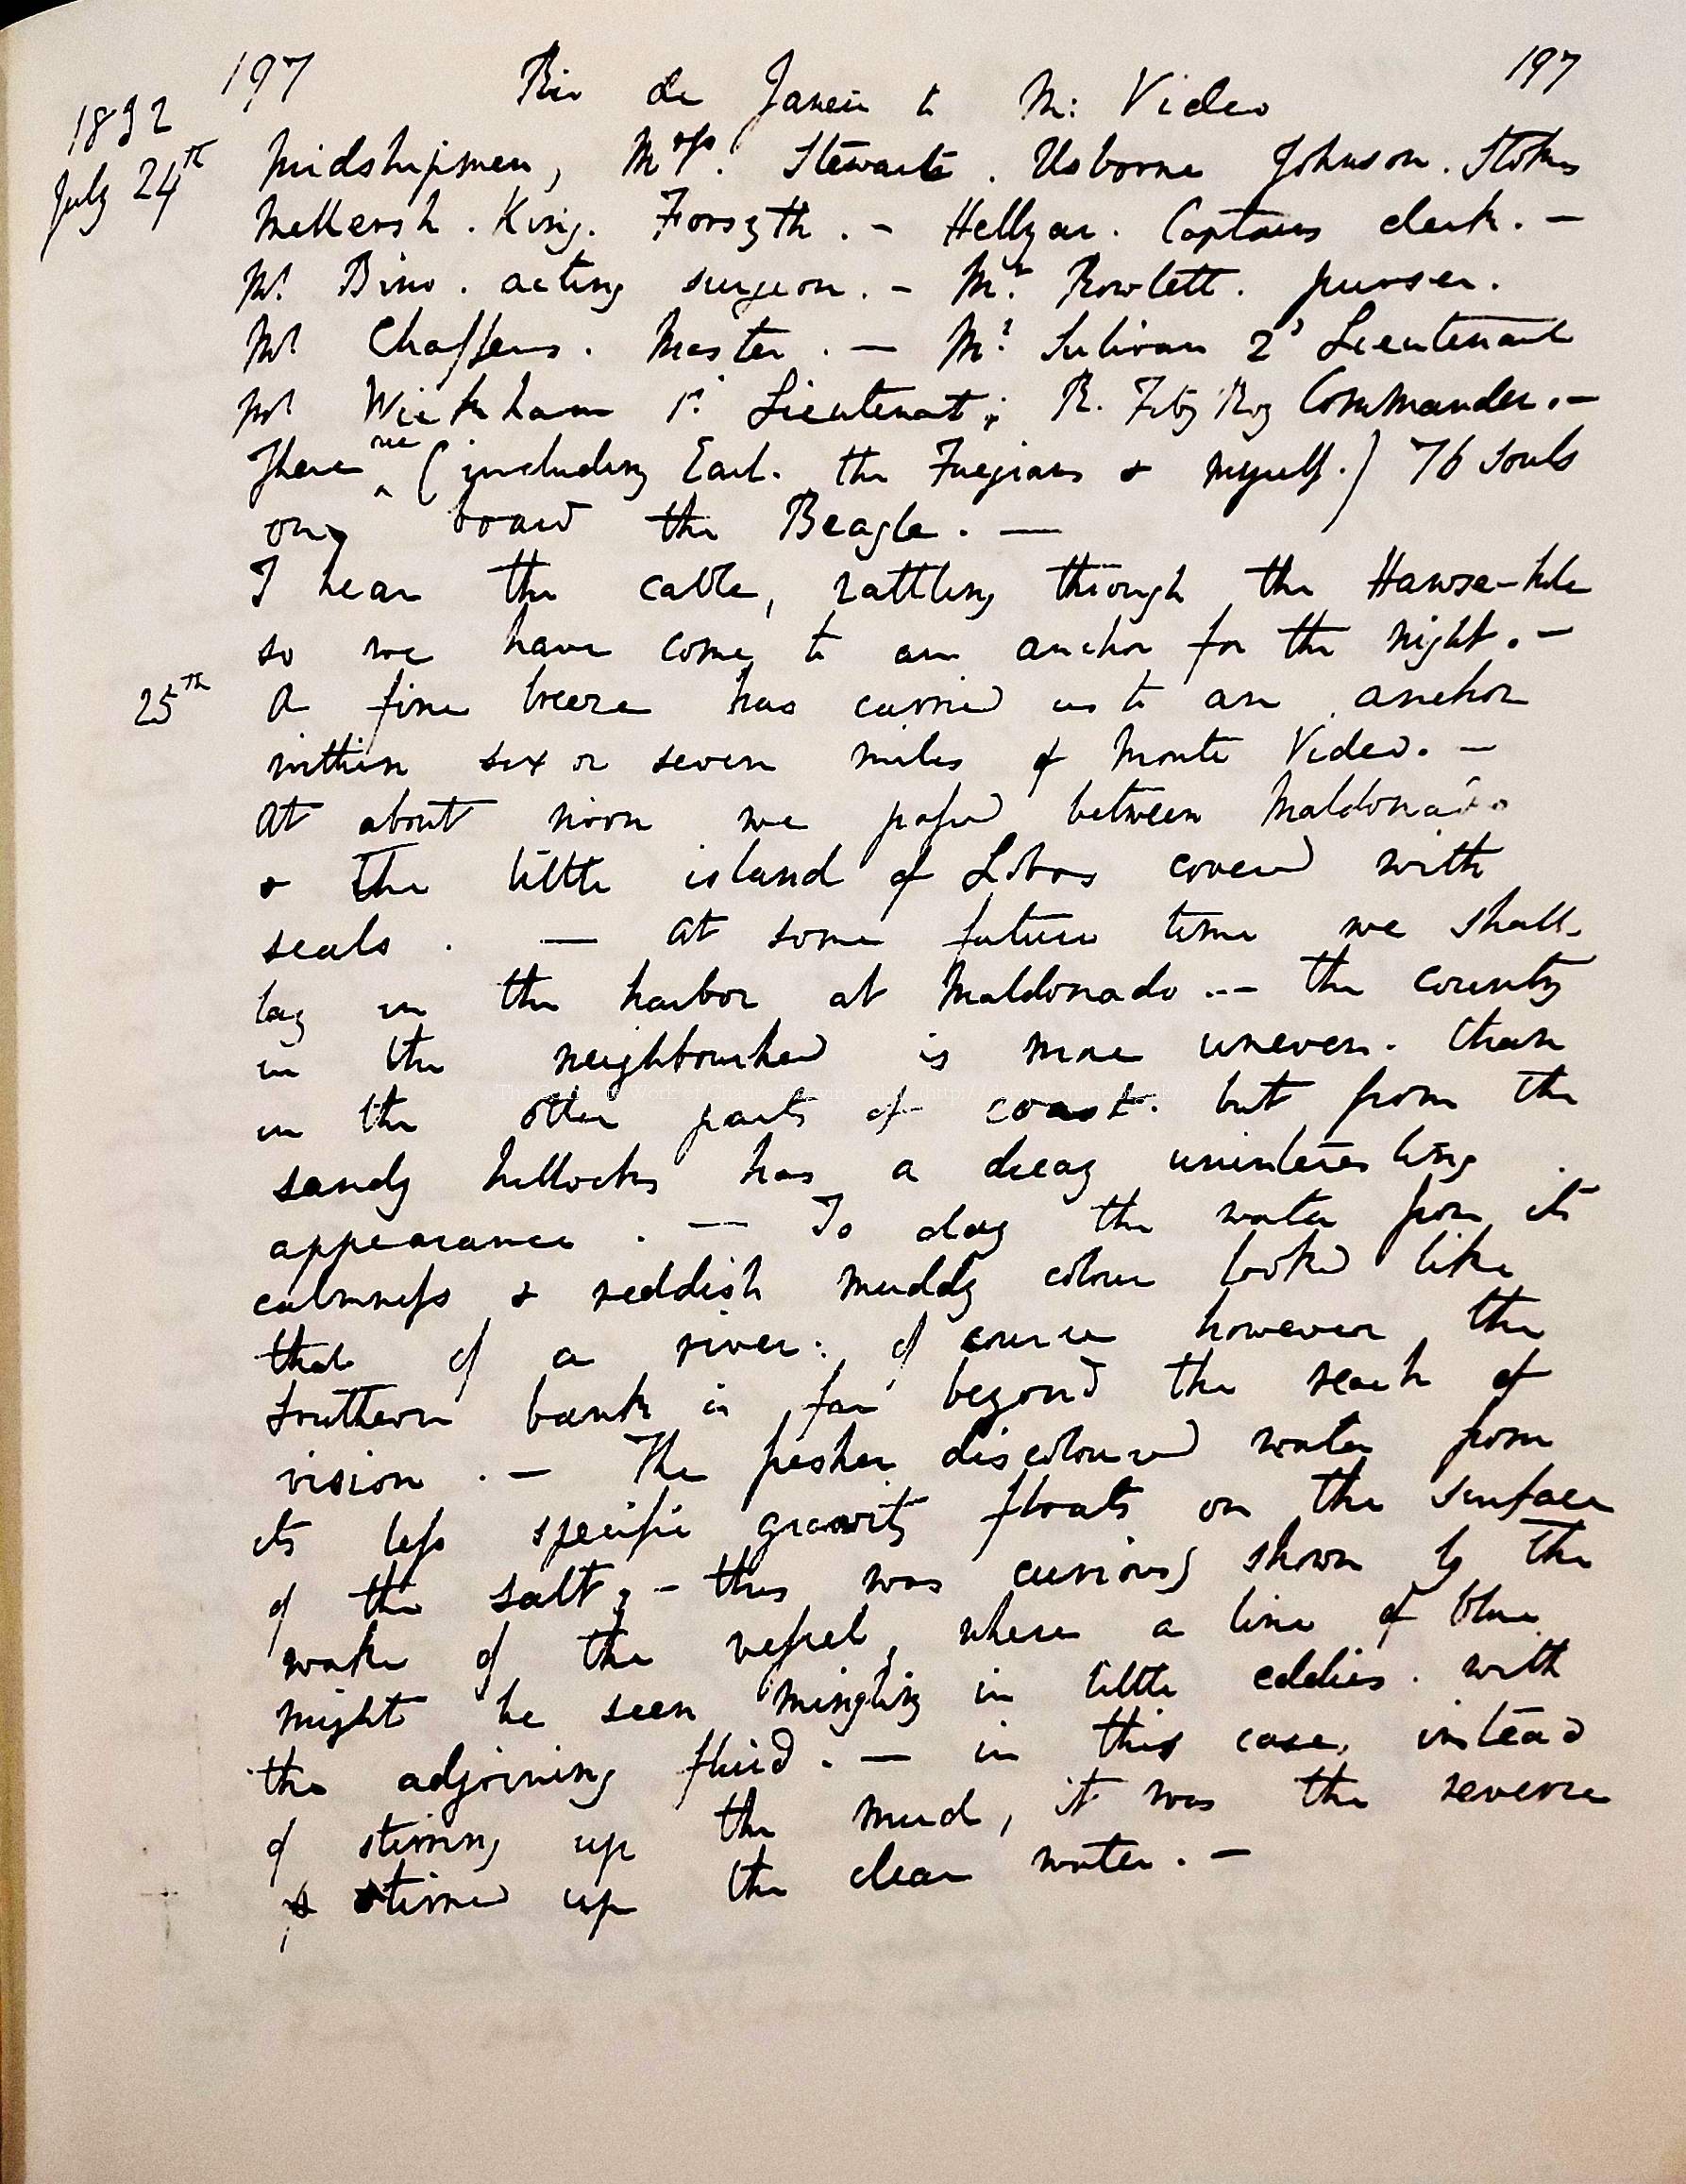 197 Rio de Janeiro to M: Video 197
1832
July 24th midshipmen, Mrs. Stewart. Usborne Johnson. Stokes
Mellersh. King. Forsyth. - Hellyar. Captains clerk. -
Mr. Bino. acting surgeon. - Mr. Rowlett. purser.
Mr Chaffers. Master. - Mr. Sulivan 2d Lieutenant
Mr Wickham 1st Lieutenat; R. FitzRoy Commander. -
There are (including Earl. the Fuegians & myself.) 76 souls
on board the Beagle. —
I hear the cable, rattling through the Hawse-hole
so we have come to an anchor for the night. -
25th A fine breeze has carried us to an anchor
within six or seven miles of Monte Video. -
At about noon we passed between Maldonado
& the little island of Lobos covered with
seals. — At some future time we shall
lay in the harbor at Maldonado. — the country
in the neighbourhed is more uneven. than
in the other parts of coast. but from the
sandy hillocks has a dreay uninteresting
appearance. — To day the water from its
calmness & reddish muddy colour looked like
that of a river: of course however the
Southern bank is far beyond the reach of
vision. - The fresher discoloured water from
its less specific gravity floats on the surface
of the salt; - this was curiously shown by the
wake of the vessel, where a line of blue
might be seen mingling in little eddies. with
the adjoining fluid. — in this case, instead
of stirring up the mud, it was the reverse
& stirred up the clear water. -